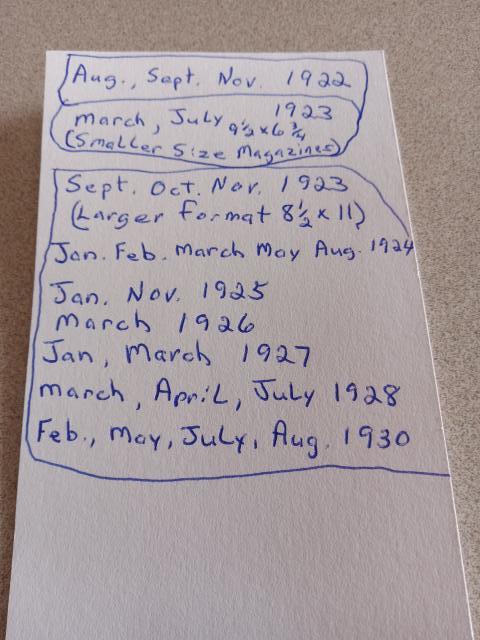 Aug., Sept. Nov. 1922
March, July 9½ x 6¾ 1923
(Smaller Size Magazines)
Sept. Oct. Nov. 1923
(Larger Format 8½ x 11)
Jan. Feb. March May Aug. 1924
Jan. Nov. 1925
March 1926
Jan, March 1927
March, April, July 1928
Feb., May, July, Aug. 1930